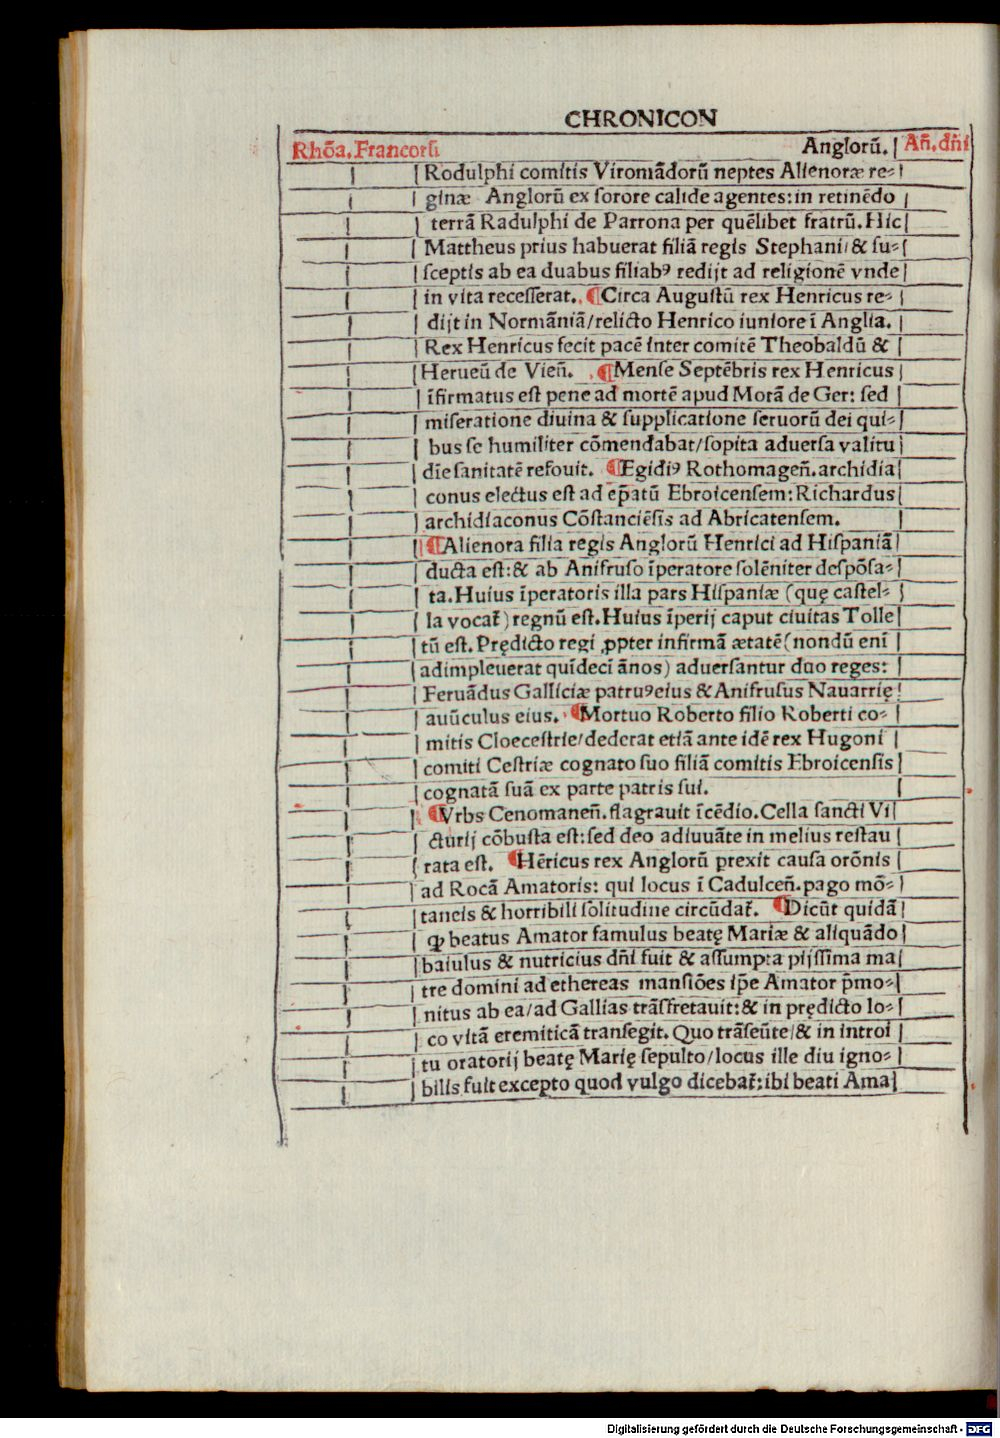 CHRONICON
Rhōa. Francorū Anglorū. An̄. dn̄i
Rodulphi comitis Viromādorū neptes Alienoræ re-
ginæ Anglorū ex sorore calide agentes: in retinēdo
terrā Radulphi de Parrona per quēlibet fratrū. Hic
Mattheus prius habuerat filiā regis Stephani/ & su-
sceptis ab ea duabus filiabꝰ redijt ad religionē vnde
in vita recesserat. ¶ Circa Augustū rex Henricus re-
dijt in Normāniā/ relicto Henrico iuniore ī Anglia.
Rex Henricus fecit pacē inter comitē Theobaldū &
Herueū de Vien̄. ¶ Mense Septēbris rex Henricus
īfirmatus est pene ad mortē apud Morā de Ger: sed
miseratione diuina & supplicatione seruorū dei qui-
bus se humiliter cōmendabat/ sopita aduersa valitu
dīe sanitatē refouit. ¶ Egidiꝰ Rothomagen̄. archidia
conus electus est ad ep̄atū Ebroicensem: Richardus
archidiaconus Cōstanciēsis ad Abricatensem.
¶ Alienora filia regis Anglorū Henrici ad Hispaniā
ducta est: & ab Anifruso īperatore solēniter despōsa-
ta. Huius īperatoris illa pars Hispaniæ (quę castel-
la vocat̄) regnū est. Huius īperij caput ciuitas Tolle
tū est. Prędicto regi ꝓpter infirmā ætatē (nondū eni
adimpleuerat quīdeci ānos) aduersantur duo reges:
Feruādus Galliciæ patruꝰ eius & Anifrusus Nauarrię
auūculus eius. ¶ Mortuo Roberto filio Roberti co-
mitis Cloecestrie/ dederat etiā ante idē rex Hugoni
comiti Cestriæ cognato suo filiā comitis Ebroicensis
cognatā suā ex parte patris sui.
¶ Vrbs Cenomanen̄. flagrauit īcēdio. Cella sancti Vi
cturij cōbusta est: sed deo adiuuāte in melius restau
rata est. ¶ Hēricus rex Anglorū perexit causa orōnis
ad Rocā Amatoris: qui locus ī Cadulcen̄. pago mō-
taneis & horribili solitudine circūdat̄. ¶ Dicūt quidā
ꝙ beatus Amator famulus beatę Mariæ & aliquādo
baiulus & nutricius dn̄i fuit & assumpta pijssima ma
tre domini ad ethereas mansiōes ip̄e Amator p̄mo-
nitus ab ea/ ad Gallias trāsfretauit: & in prędicto lo-
co vitā eremiticā transegit. Quo trāseūte/ & in introi
tu oratorij beatę Marię sepulto/ locus ille diu igno-
bilis fuit excepto quod vulgo dicebat̄: ibi beati Ama
Digitalisierung gefördert durch die Deutsche Forschungsgemeinschaft - DFG